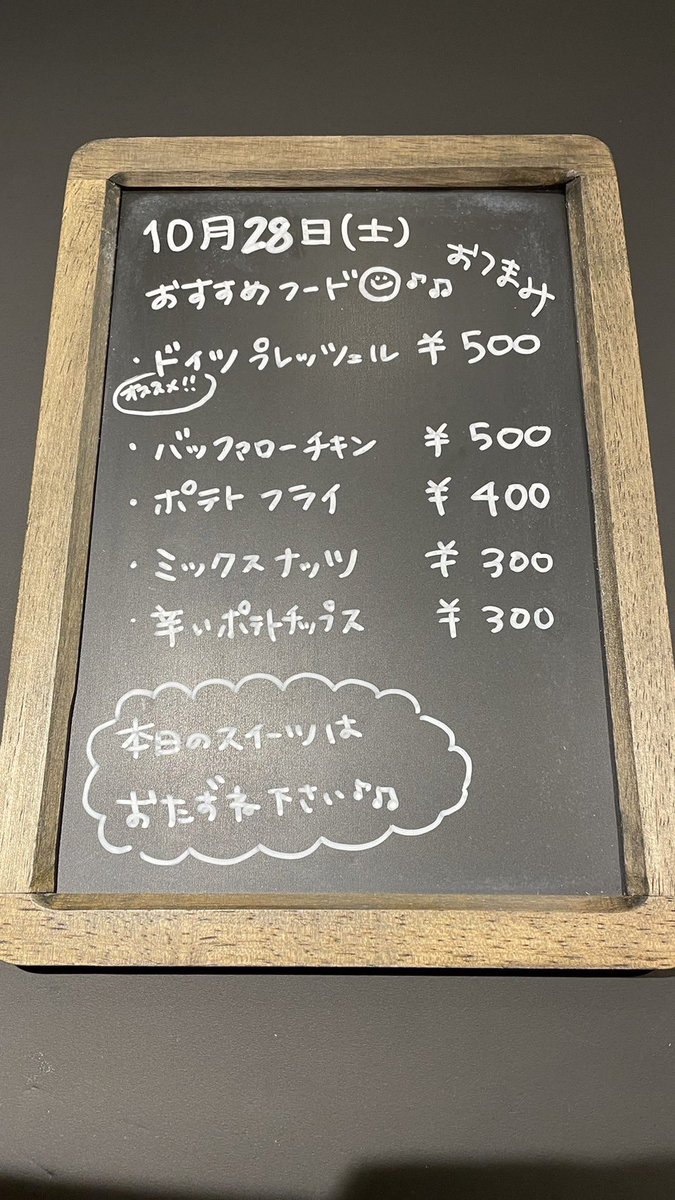 10月28日(土)
おすすめフード☺♪♫ おつまみ
・ドイツプレッツェル ¥500
オススメ!!
・バッファローチキン ¥500
・ポテトフライ ¥400
・ミックスナッツ ¥300
・辛いポテトチップス ¥300
本日のスイーツは
おたずね下さい♪♫